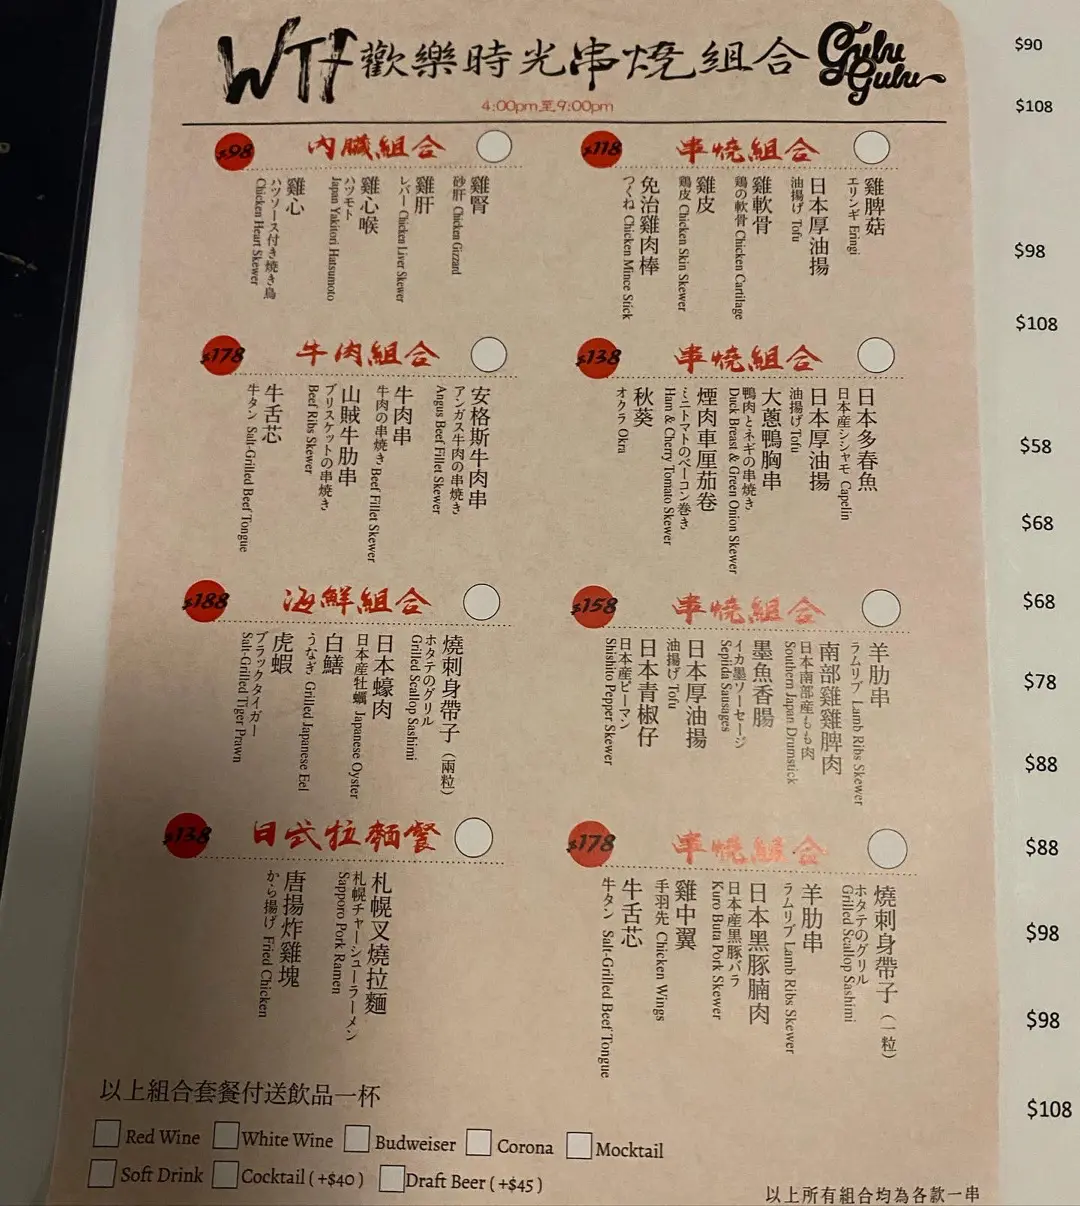 WTF 歡樂時光串燒組合 Gulu Gulu
4:00pm至9:00pm
$118 串燒組合
雞脾菇
エリンギ Eringi
日本厚油揚
油揚げ Tofu
雞軟骨
鶏の軟骨 Chicken Cartilage
雞皮
鶏皮 Chicken Skin Skewer
免治雞肉棒
つくね Chicken Mince Stick
$98 內臟組合
雞腎
砂肝 Chicken Gizzard
雞肝
レバー Chicken Liver Skewer
雞心喉
ハツモト
Japan Yakitori Hatsumoto
雞心
ハツソース付き焼き鳥
Chicken Heart Skewer
$138 串燒組合
日本多春魚
日本産シシャモ Capelin
日本厚油揚
油揚げ Tofu
大蔥鴨胸串
鴨肉とネギの串焼き
Duck Breast & Green Onion Skewer
煙肉車厘茄卷
ミニトマトのベーコン巻き
Ham & Cherry Tomato Skewer
秋葵
オクラ Okra
$178 牛肉組合
安格斯牛肉串
アンガス牛肉の串焼き
Angus Beef Fillet Skewer
牛肉串
牛肉の串焼き Beef Fillet Skewer
山賊牛肋串
ブリスケットの串焼き
Beef Ribs Skewer
牛舌芯
牛タン Salt-Grilled Beef Tongue
$158 串燒組合
羊肋串
ラムリブ Lamb Ribs Skewer
南部雞雞脾肉
日本南部産もも肉
Southern Japan Drumstick
墨魚香腸
イカ墨ソーセージ
Sepida Sausages
日本厚油揚
油揚げ Tofu
日本青椒仔
日本産ピーマン
Shishito Pepper Skewer
$188 海鮮組合
燒刺身帶子（兩粒）
ホタテのグリル
Grilled Scallop Sashimi
日本蠔肉
日本産牡蠣 Japanese Oyster
白鱔
うなぎ Grilled Japanese Eel
虎蝦
ブラックタイガー
Salt-Grilled Tiger Prawn
$178 串燒組合
燒刺身帶子（一粒）
ホタテのグリル
Grilled Scallop Sashimi
羊肋串
ラムリブ Lamb Ribs Skewer
日本黑豚腩肉
日本産黒豚バラ
Kuro Buta Pork Skewer
雞中翼
手羽先 Chicken Wings
牛舌芯
牛タン Salt-Grilled Beef Tongue
$138 日式拉麵餐
札幌叉燒拉麵
札幌チャーシューラーメン
Sapporo Pork Ramen
唐揚炸雞塊
から揚げ Fried Chicken
以上組合套餐付送飲品一杯
Red Wine White Wine Budweiser Corona Mocktail
Soft Drink Cocktail ( +$40 ) Draft Beer ( +$45 )
以上所有組合均為各款一串
$90
$108
$98
$108
$58
$68
$68
$78
$88
$88
$98
$98
$108